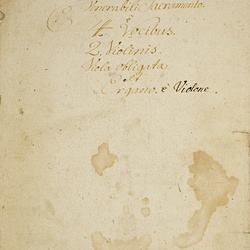 Venerabili Sacramento.
4. Vocibus.
2. Violinis.
Viola obligata
et
Organo. è Violone.